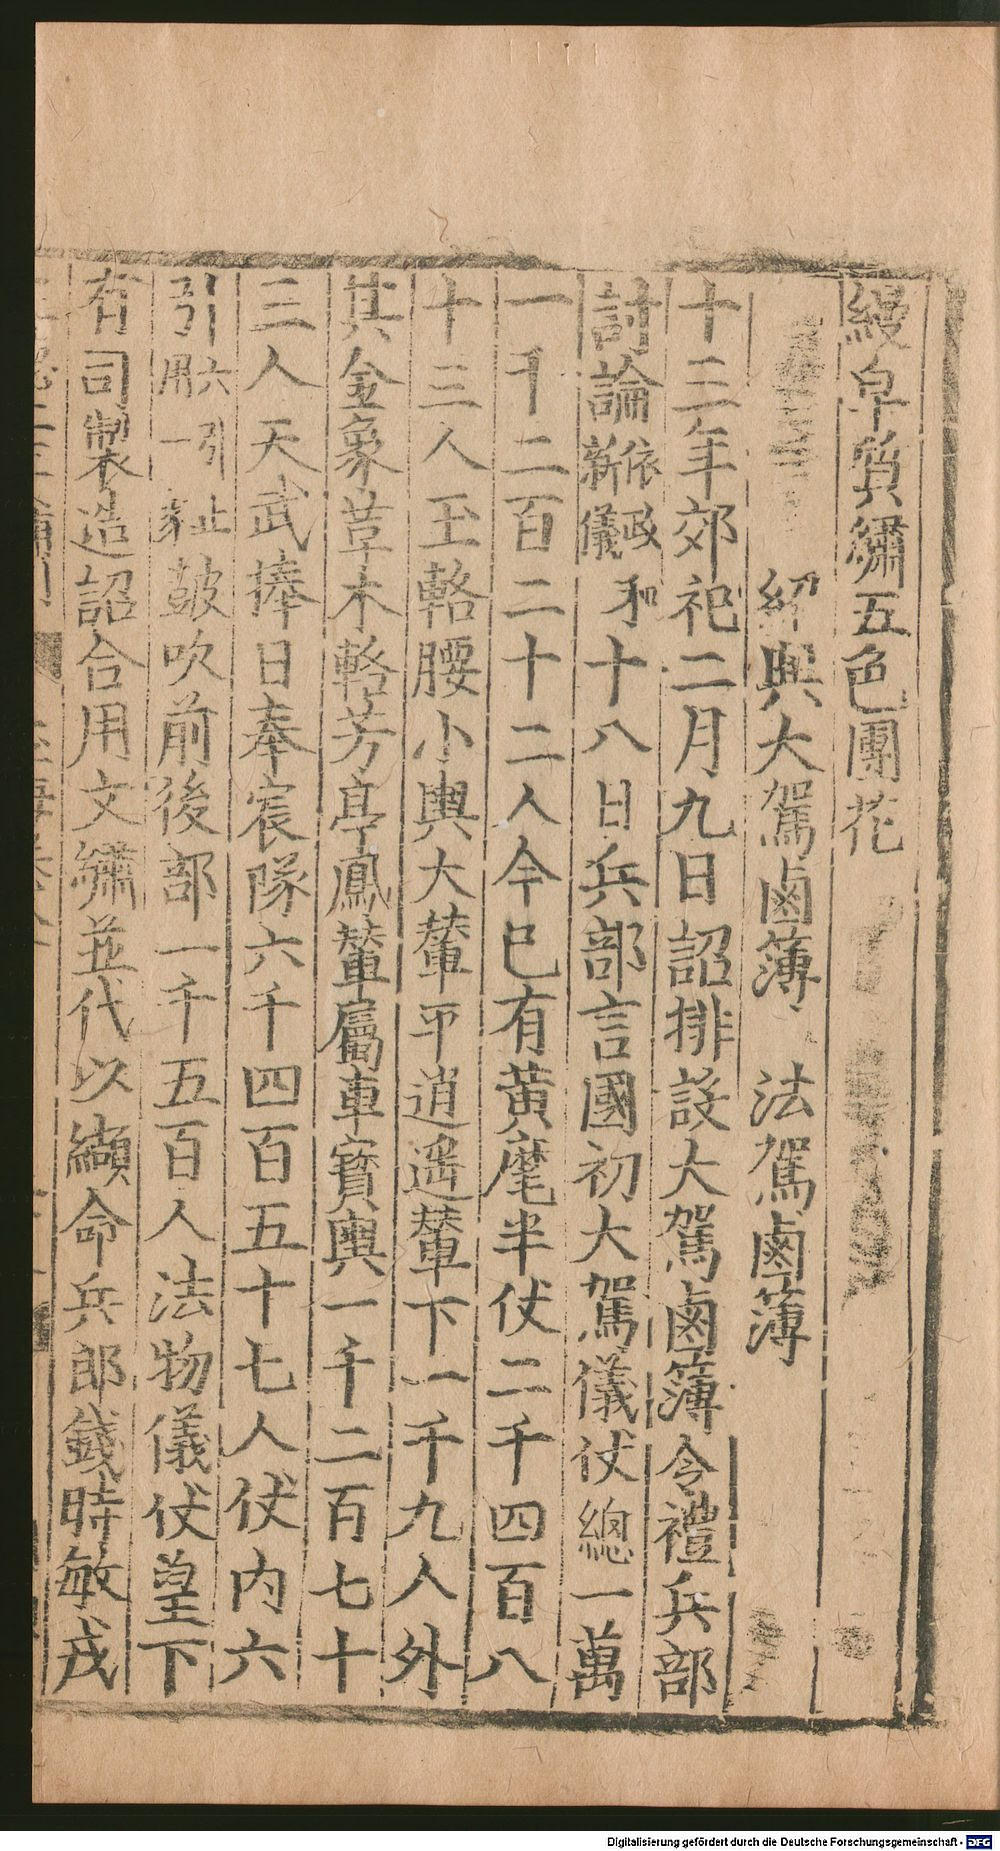 縵皁質繡五色團花
紹興大駕鹵簿 法駕鹵簿
十三年郊祀二月九日詔排設大駕鹵簿令禮兵部
討論依政和新儀十八日兵部言國初大駕儀仗總一萬
一千二百二十二人今已有黃麾半仗二千四百八
十三人玉輅腰小輿大輦平逍遥輦下一千九人外
其金象革木輅芳亭鳳輦屬車寶輿一千二百七十
三人天武捧日奉宸隊六千四百五十七人仗内六
引六引用一引止 鼓吹前後部一千五百人法物儀仗皇下
有司製造詔合用文繡並代以纈命兵郎錢時敏戎
Digitalisierung gefördert durch die Deutsche Forschungsgemeinschaft - DFG